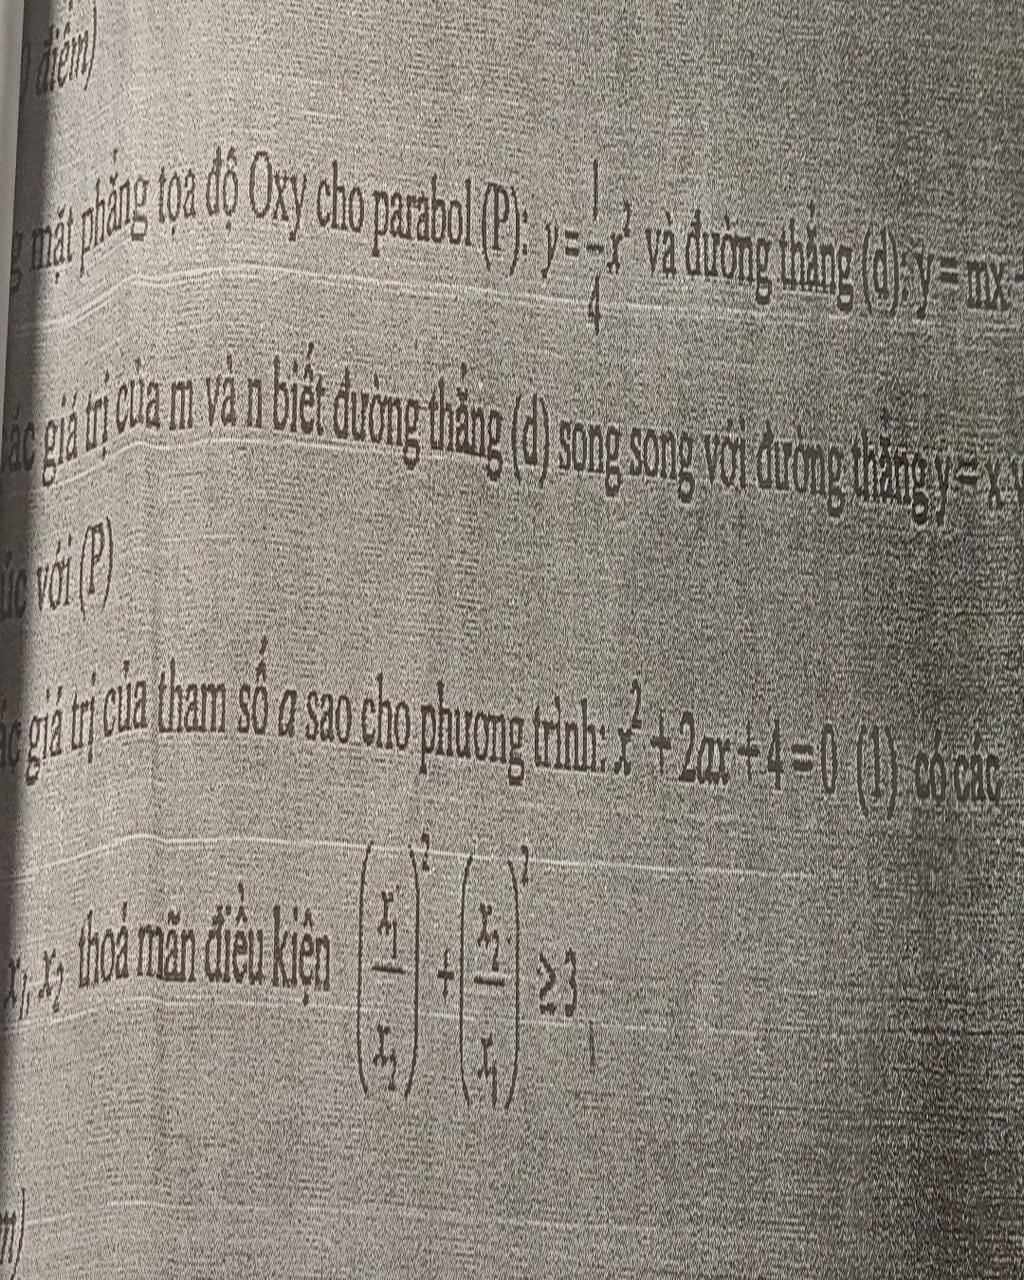 điểm)
mặt phẳng tọa độ Oxy cho parabol (P): y = \frac{1}{4}x^2 và đường thẳng (d): y = mx
giá trị của m và n biết đường thẳng (d) song song với đường thẳng y = x
với (P)
giá trị của tham số a sao cho phương trình: x^2 + 2ax + 4 = 0 (1) có các
x_1, x_2 thoả mãn điều kiện \left(\frac{x_1}{x_2}\right)^2 + \left(\frac{x_2}{x_1}\right)^2 ≥ 3